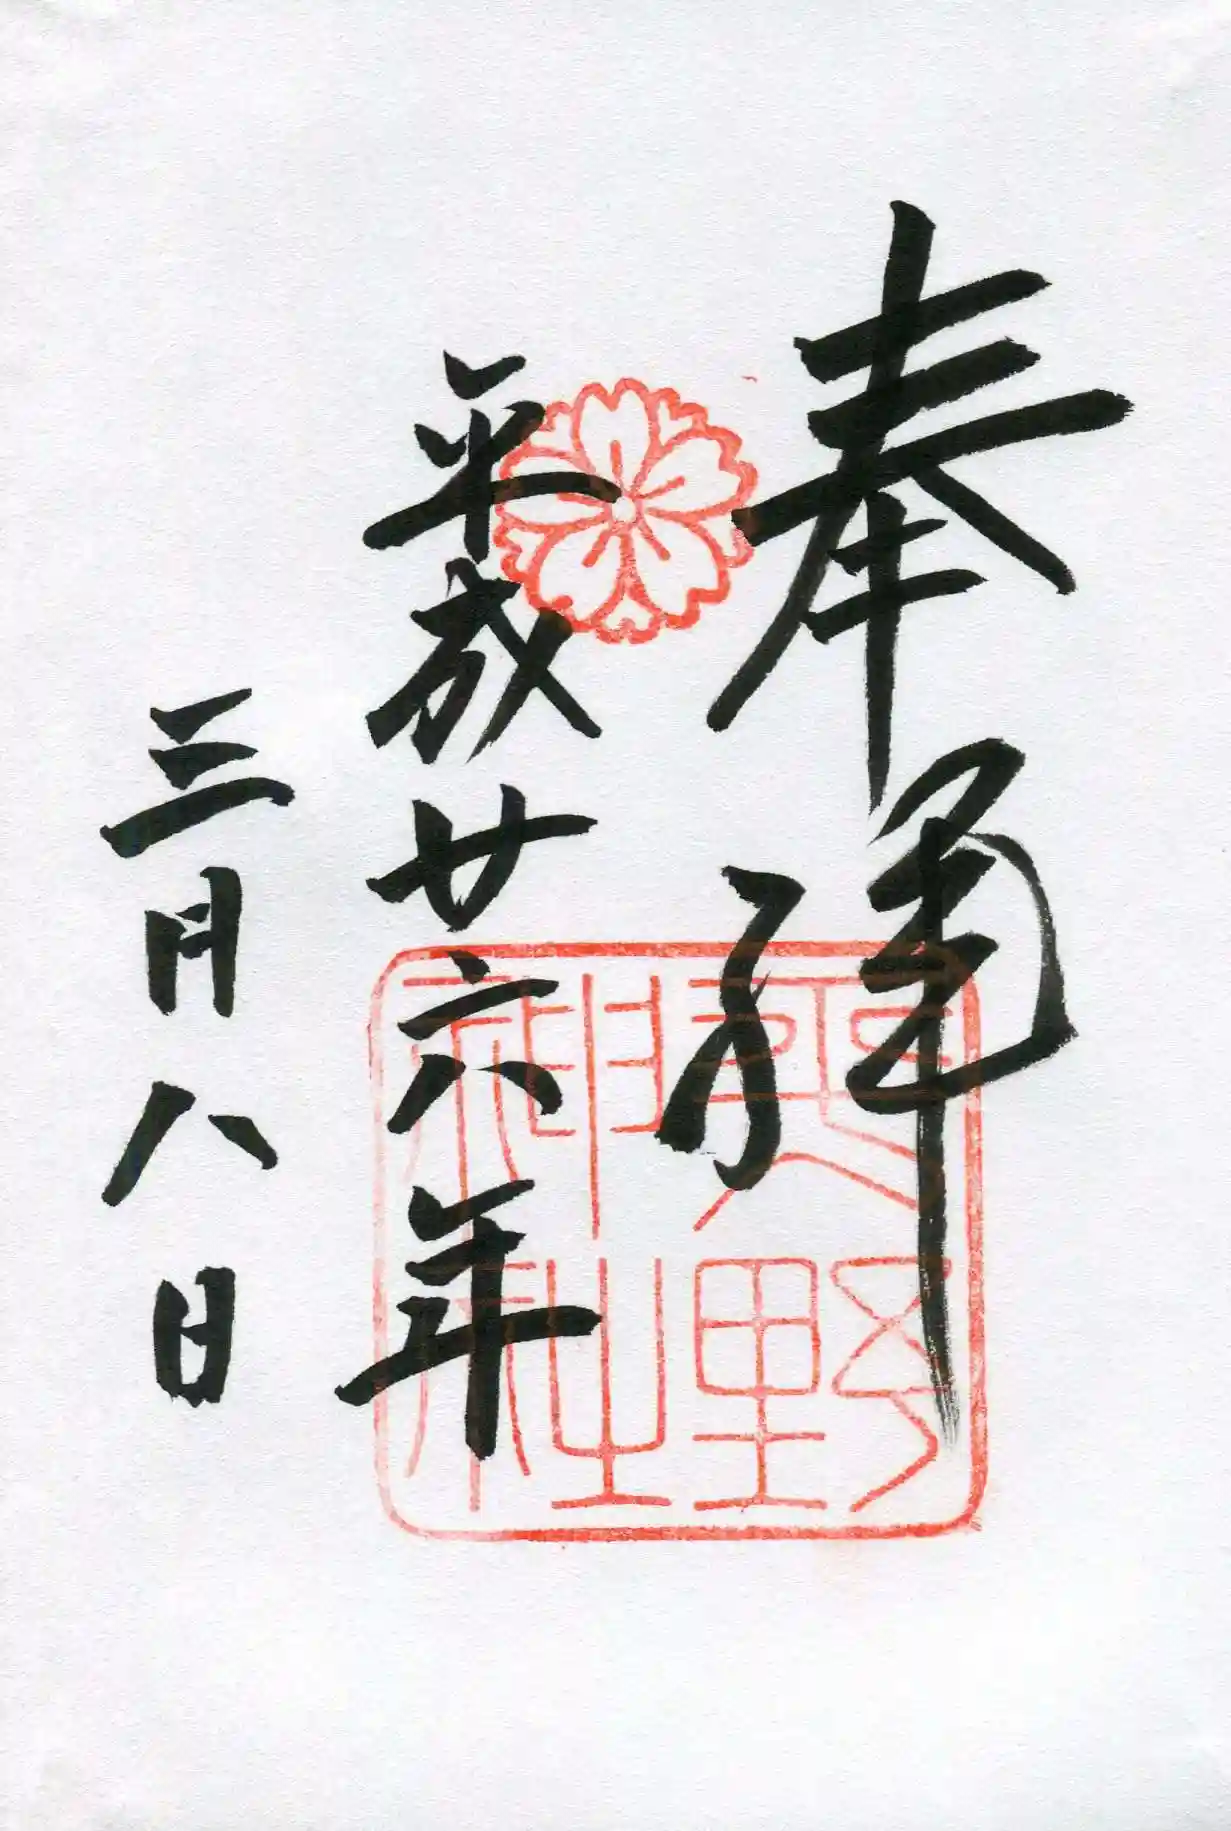 奉拝
平成廿六年
三月八日
平野神社